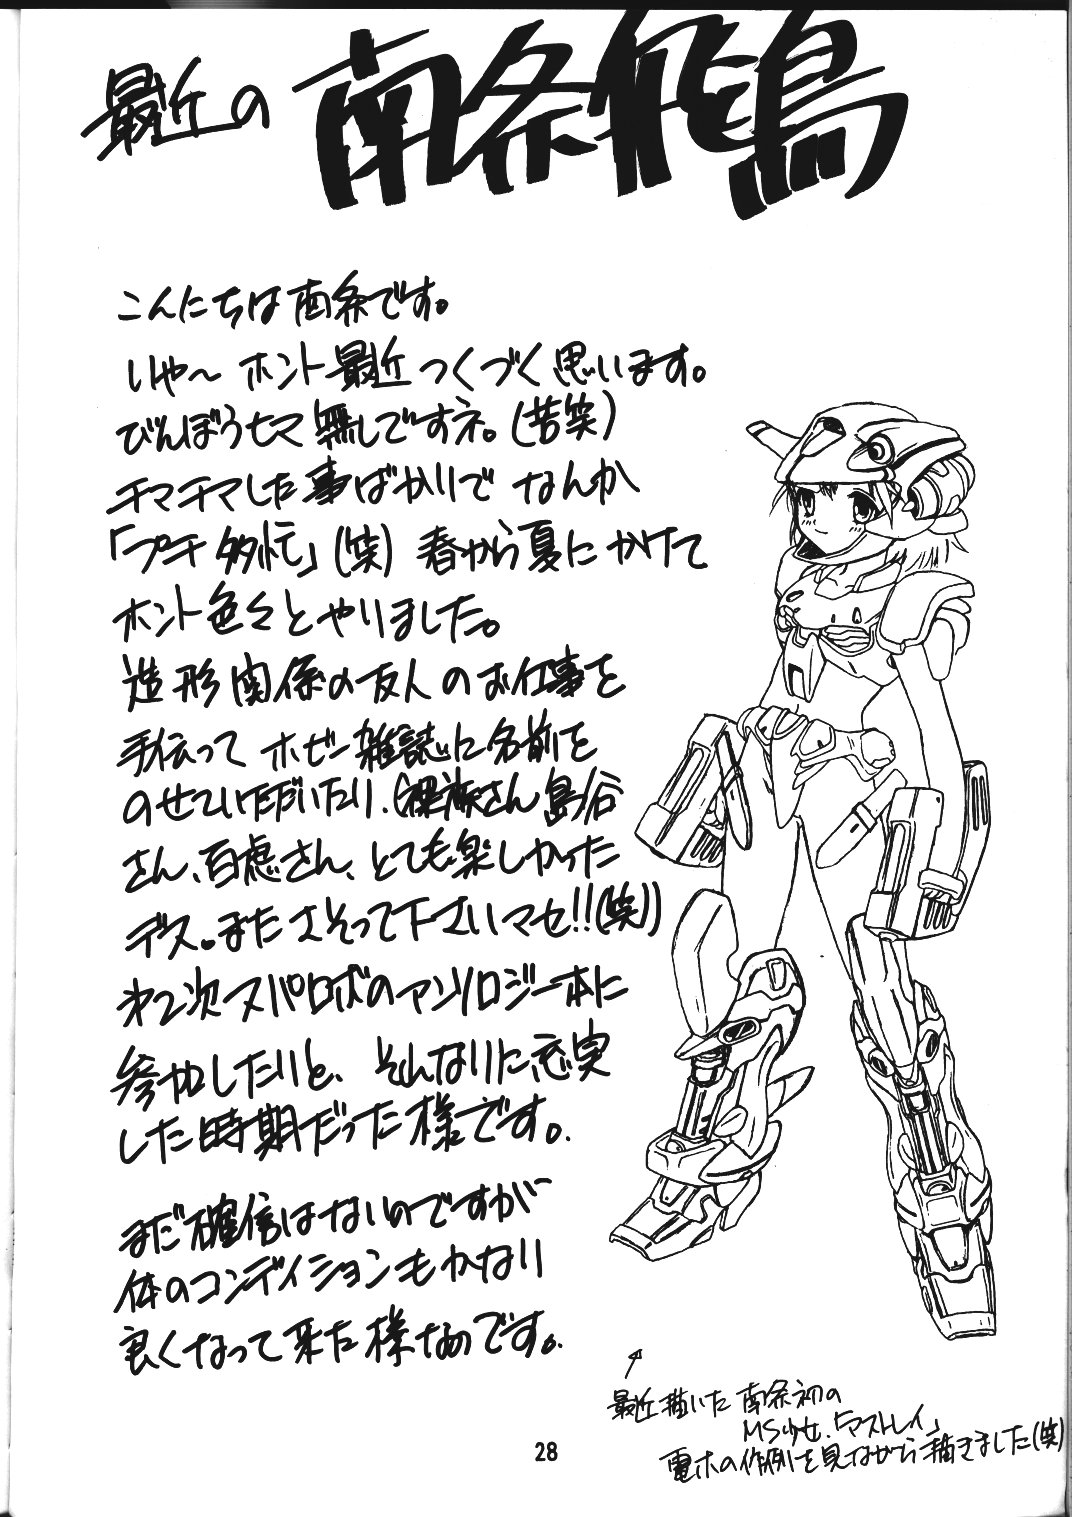 最近の 南条飛鳥
こんにちは南条です。
いや～ ホント最近つくづく思います。
びんぼうヒマ無しですネ。(苦笑)
チマチマした事ばかりで なんか
「プチ多忙」(笑) 春から夏にかけて
ホント色々とやりました。
造形関係の友人のお仕事を
手伝って ホビー雑誌に名前を
のせていただいたり、(裸族さん 島谷
さん、百虑さん、とても楽しかった
デス。またさそって下さいマセ!!(笑))
第2次スパロボのアンソロジー本に
参加したりと、そんなりに充実
した時期だった様です。
まだ確信はないのですが
体のコンディションもかなり
良くなって来た様なのです。
最近描いた 南条初の
MS少女「アストレイ」
電ホの作例を見ながら描きました(笑)
28